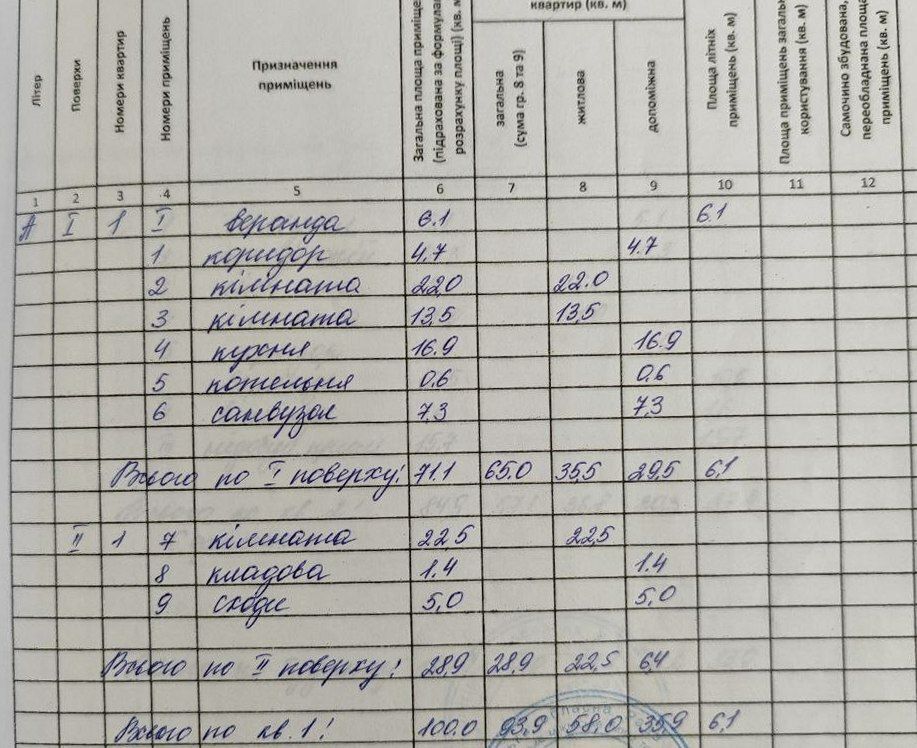 Літер
Поверхи
Номери квартир
Номери приміщень
Призначення приміщень
Загальна площа приміщень (підрахована за формулами розрахунку площі) (кв. м)
квартир (кв. м)
загальна (сума гр. 8 та 9)
житлова
допоміжна
Площа літніх приміщень (кв. м)
Площа приміщень загального користування (кв. м)
Самочино збудована, переобладнана площа приміщень (кв. м)
1 2 3 4 5 6 7 8 9 10 11 12
А І 1 І веранда 6.1 6.1
1 коридор 4.7 4.7
2 кімната 22,0 22.0
3 кімната 13,5 13,5
4 кухня 16.9 16.9
5 котельня 0.6 0.6
6 санвузол 7,3 7,3
Всього по І поверху: 71.1 65.0 35,5 29,5 6,1
ІІ 1 7 кімната 22,5 22,5
8 кладова 1.4 1.4
9 сходи 5,0 5,0
Всього по ІІ поверху: 28,9 28,9 22,5 6,4
Всього по кв. 1: 100.0 93,9 58,0 35,9 6,1